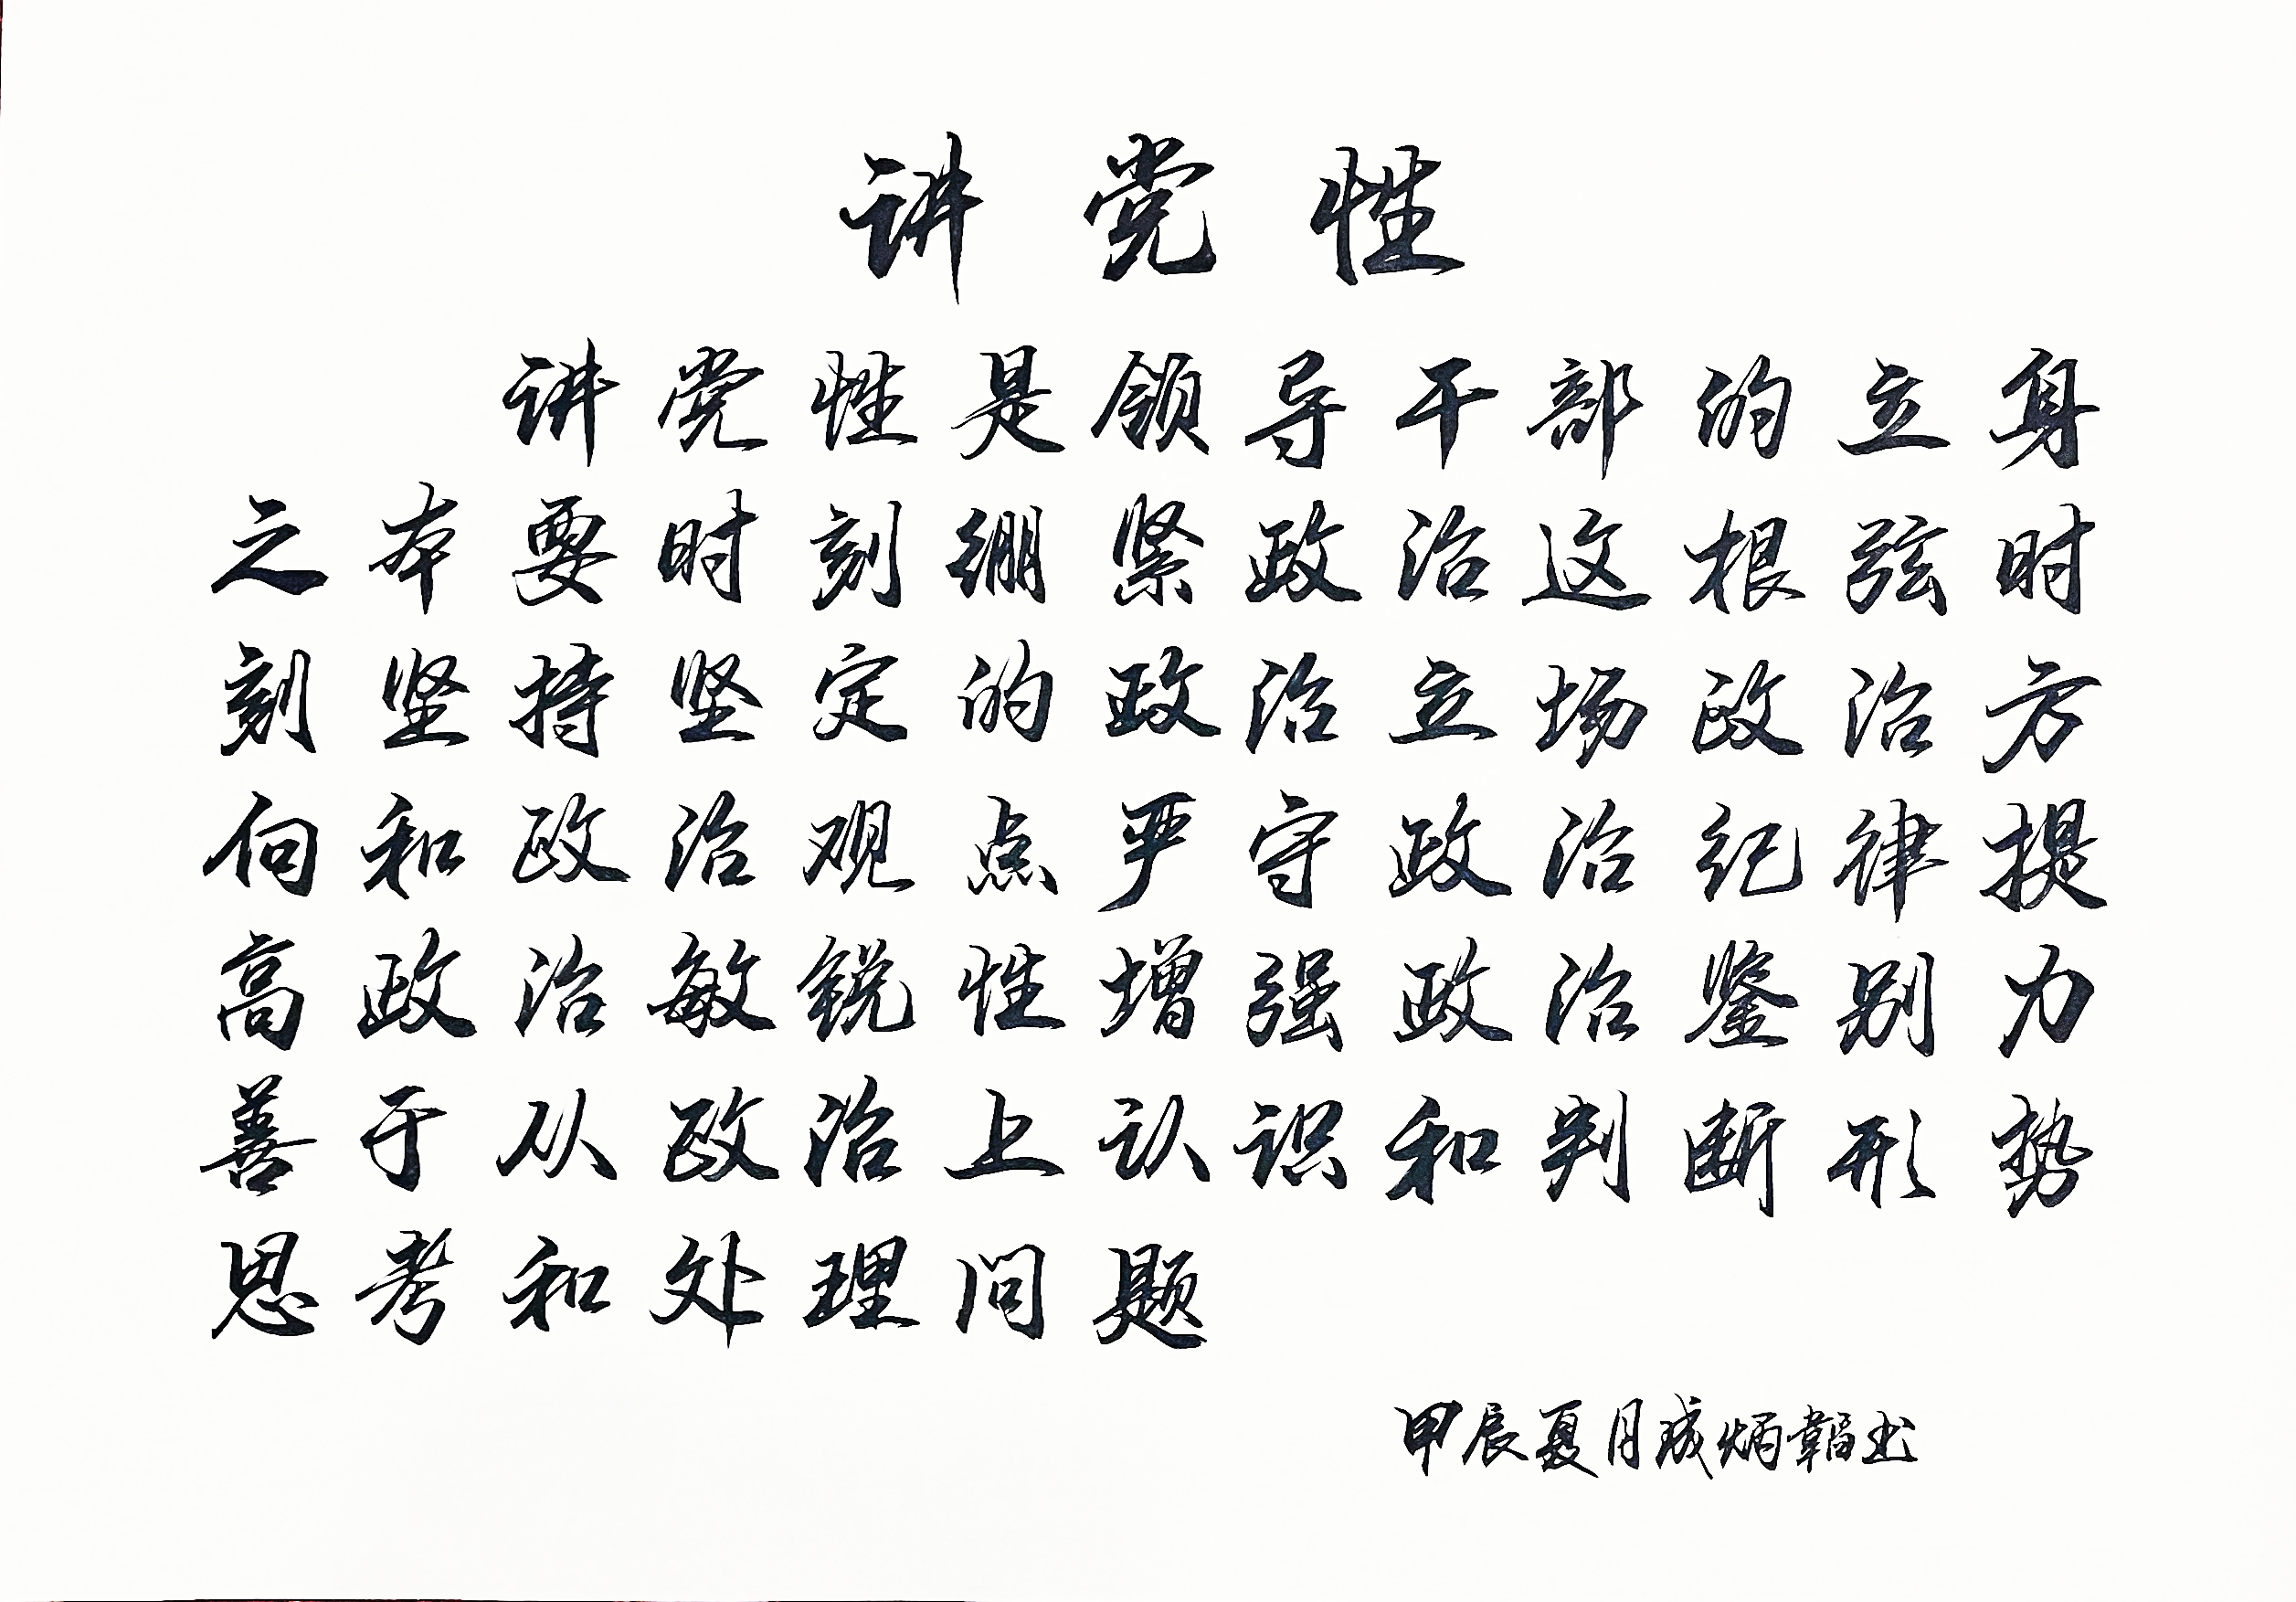 讲党性
讲党性是领导干部的立身
之本要时刻绷紧政治这根弦时
刻坚持坚定的政治立场政治方
向和政治观点严守政治纪律提
高政治敏锐性增强政治鉴别力
善于从政治上认识和判断形势
思考和处理问题
甲辰夏月成炳韬书